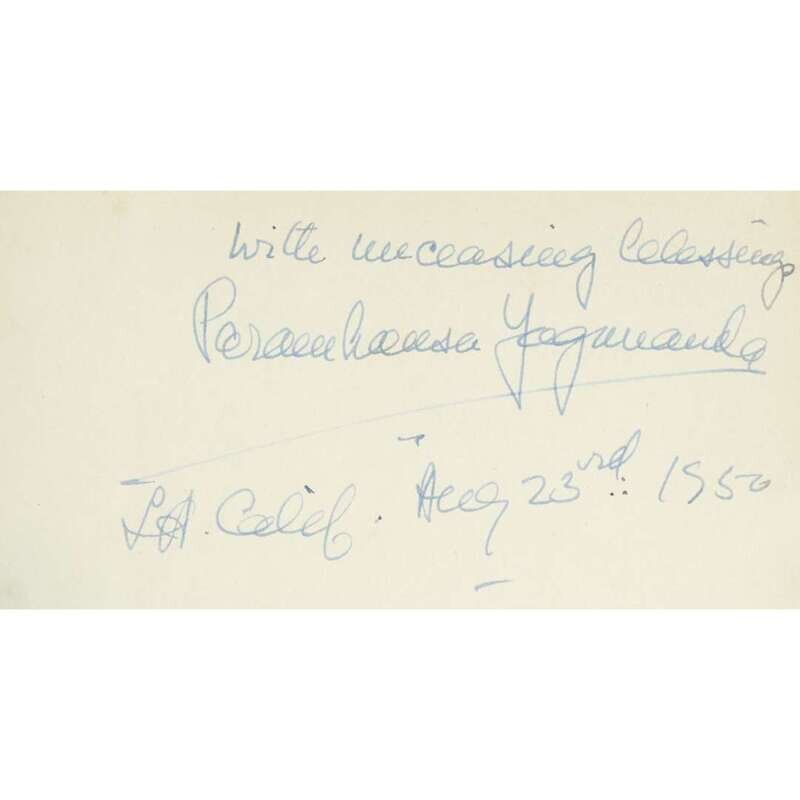 With unceasing blessings
Paramhansa Yogananda
LA. Calif. Aug 23rd 1950